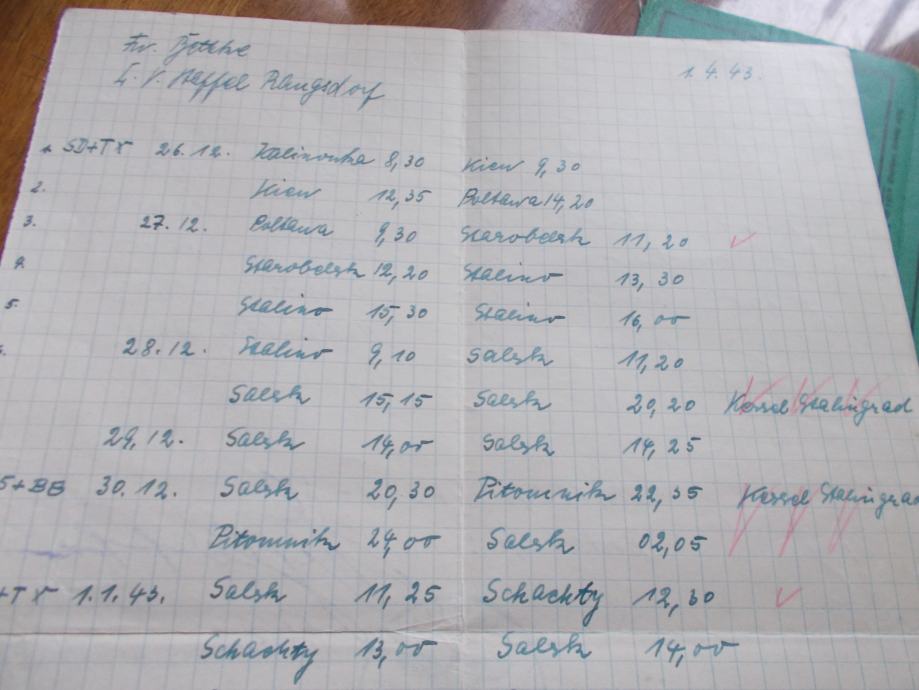 Fw. Jethke
L. V. Staffel Rangsdorf 1.4.43.
1. SD+TX 26.12. Kalinowka 8,30 Kiew 9,30
2. Kiew 12,35 Poltawa 14,20
3. 27.12. Poltawa 9,30 Starobelsk 11,20 ✓
4. Starobelsk 12,20 Stalino 13,30
5. Stalino 15,30 Stalino 16,00
28.12. Stalino 9,10 Salsk 11,20
Salsk 15,15 Salsk 20,20 Kessel Stalingrad
29.12. Salsk 14,00 Salsk 14,25
S+BB 30.12. Salsk 20,30 Pitomnik 22,35 Kessel Stalingrad
Pitomnik 24,00 Salsk 02,05
+TX 1.1.43. Salsk 11,25 Schachty 12,30 ✓
Schachty 13,00 Salsk 14,00